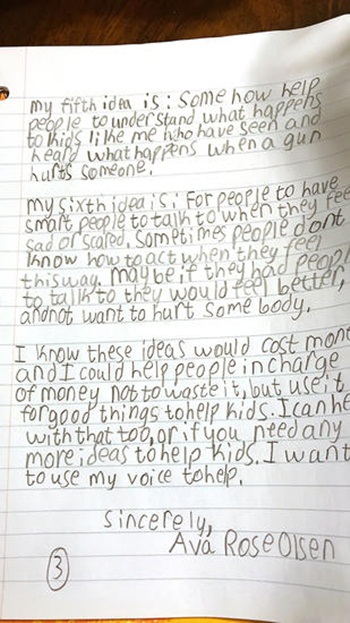 my fifth idea is: Some how help
people to understand what happens
to kids like me who have seen and
heard what happens when a gun
hurts someone.
my sixth idea is: For people to have
smart people to talk to when they fee
sad or scared. Sometimes people dont
know how to act when they feel
this way. Maybe if they had peopl
to talk to they would feel better,
and not want to hurt some body.
I know these ideas would cost mon
and I could help people in charge
of money not to waste it, but use it
for good things to help kids. I can he
with that too, or if you need any
more ideas to help kids. I want
to use my voice to help.
Sincerely,
Ava Rose Olsen
3